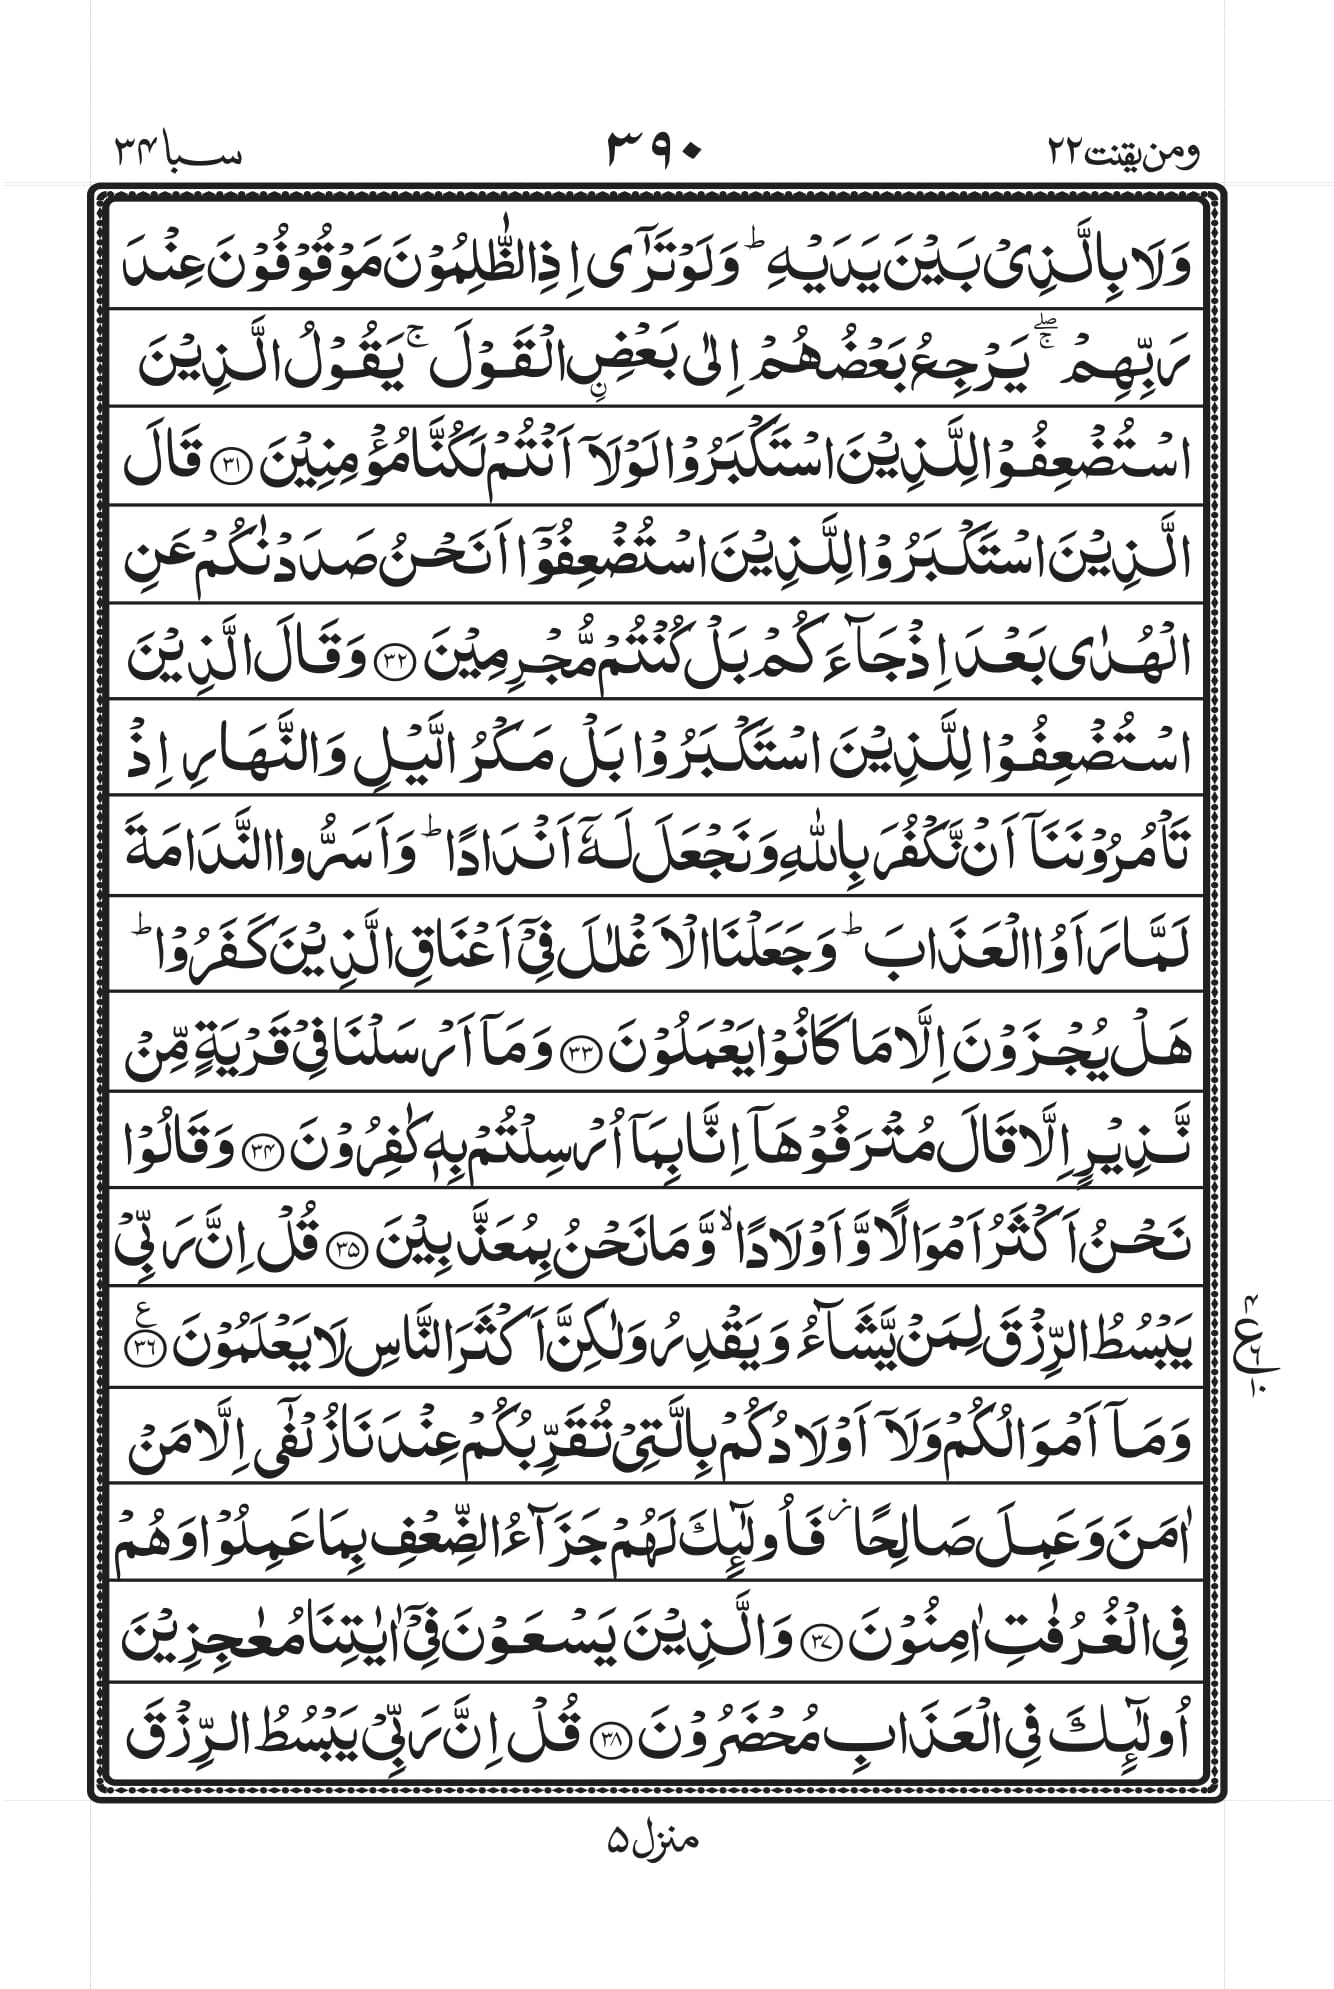 ومن یقنت ۲۲ ۳۹۰ سبا ۳۴
وَلَا بِالَّذِیْ بَیْنَ یَدَیْهِ ؕ وَلَوْ تَرٰۤی اِذِ الظّٰلِمُوْنَ مَوْقُوْفُوْنَ عِنْدَ
رَبِّهِمْ ۖۚ یَرْجِعُ بَعْضُهُمْ اِلٰی بَعْضِ ࣙالْقَوْلَ ۚ یَقُوْلُ الَّذِیْنَ
اسْتُضْعِفُوْا لِلَّذِیْنَ اسْتَكْبَرُوْا لَوْلَاۤ اَنْتُمْ لَكُنَّا مُؤْمِنِیْنَ ۳۱ قَالَ
الَّذِیْنَ اسْتَكْبَرُوْا لِلَّذِیْنَ اسْتُضْعِفُوْۤا اَنَحْنُ صَدَدْنٰكُمْ عَنِ
الْهُدٰی بَعْدَ اِذْ جَآءَكُمْ بَلْ كُنْتُمْ مُّجْرِمِیْنَ ۳۲ وَقَالَ الَّذِیْنَ
اسْتُضْعِفُوْا لِلَّذِیْنَ اسْتَكْبَرُوْا بَلْ مَكْرُ الَّیْلِ وَالنَّهَارِ اِذْ
تَاْمُرُوْنَنَاۤ اَنْ نَّكْفُرَ بِاللّٰهِ وَنَجْعَلَ لَهٗۤ اَنْدَادًا ؕ وَاَسَرُّوا النَّدَامَةَ
لَمَّا رَاَوُا الْعَذَابَ ؕ وَجَعَلْنَا الْاَغْلٰلَ فِیْۤ اَعْنَاقِ الَّذِیْنَ كَفَرُوْا ؕ
هَلْ یُجْزَوْنَ اِلَّا مَا كَانُوْا یَعْمَلُوْنَ ۳۳ وَمَاۤ اَرْسَلْنَا فِیْ قَرْیَةٍ مِّنْ
نَّذِیْرٍ اِلَّا قَالَ مُتْرَفُوْهَاۤ اِنَّا بِمَاۤ اُرْسِلْتُمْ بِهٖ كٰفِرُوْنَ ۳۴ وَقَالُوْا
نَحْنُ اَكْثَرُ اَمْوَالًا وَّاَوْلَادًا ۙ وَّمَا نَحْنُ بِمُعَذَّبِیْنَ ۳۵ قُلْ اِنَّ رَبِّیْ
یَبْسُطُ الرِّزْقَ لِمَنْ یَّشَآءُ وَیَقْدِرُ وَلٰكِنَّ اَكْثَرَ النَّاسِ لَا یَعْلَمُوْنَ ۳۶ ع
۴ ع ۶ ۱۰
وَمَاۤ اَمْوَالُكُمْ وَلَاۤ اَوْلَادُكُمْ بِالَّتِیْ تُقَرِّبُكُمْ عِنْدَنَا زُلْفٰۤی اِلَّا مَنْ
اٰمَنَ وَعَمِلَ صَالِحًا ؗ فَاُولٰٓئِكَ لَهُمْ جَزَآءُ الضِّعْفِ بِمَا عَمِلُوْا وَهُمْ
فِی الْغُرُفٰتِ اٰمِنُوْنَ ۳۷ وَالَّذِیْنَ یَسْعَوْنَ فِیْۤ اٰیٰتِنَا مُعٰجِزِیْنَ
اُولٰٓئِكَ فِی الْعَذَابِ مُحْضَرُوْنَ ۳۸ قُلْ اِنَّ رَبِّیْ یَبْسُطُ الرِّزْقَ
منزل ۵